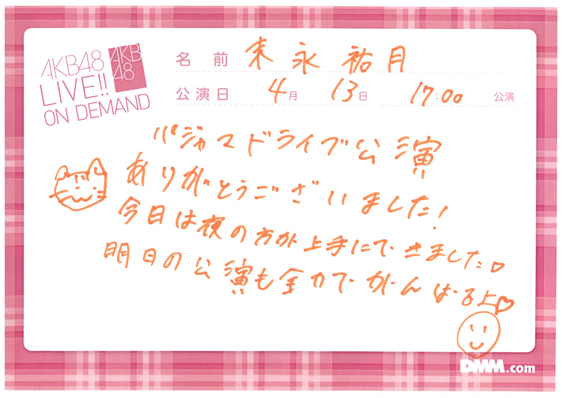 AKB48
LIVE!!
ON DEMAND
AKB
48
名前 来永祐月
公演日 4月 13日 17:00 公演
パジャマドライブ公演
ありがとうございました!
今日は夜の方が上手にできました♡
明日の公演も全力でがんばるよ♡
DMM.com